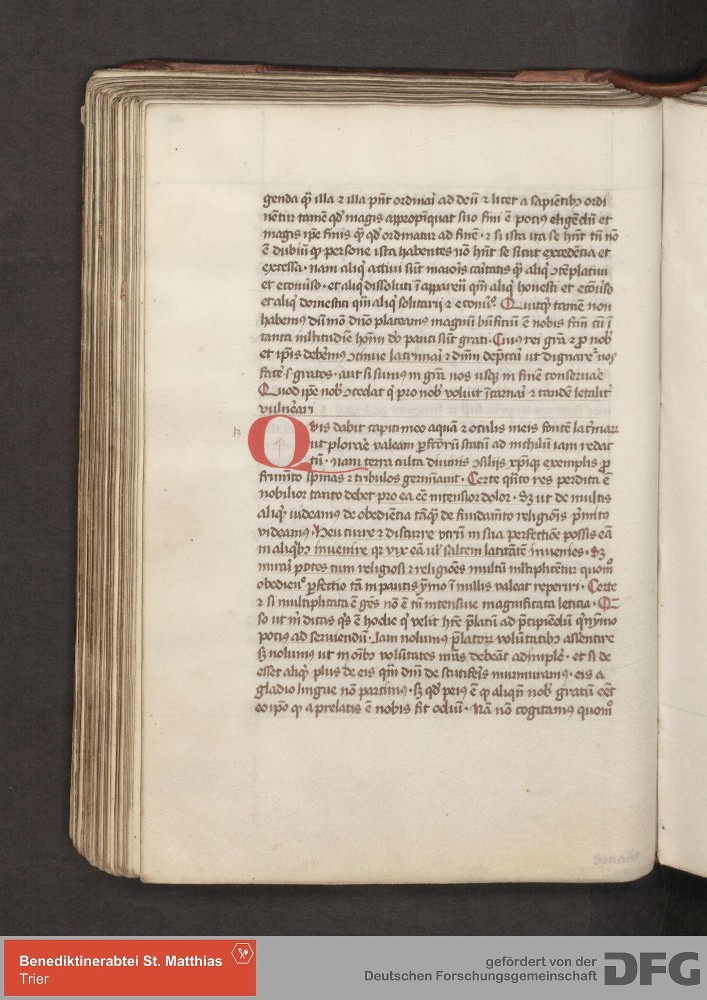 genda qͣ illa ⁊ illa pn̄t ordinaı̉ ad deū ⁊ licet a sapientibꝫ ordi
nētur tamē qđ magis appropinquat suo fini ē potiꝰ eligendū et
magis ipe finis qͣ qđ ordinatur ad finē · ⁊ si ista ita se hn̄t tn̄ nō
ē dubiū qꝫ persone ista habentes nō hn̄t se sicut excedētia et
excessa · nam aliqͥ actiui sūt maioı̉s caı̉tatis qͣ aliqͥ ꝯtēplatiui
et ecōuı̉so · et aliqͥ dissoluti ī apparenī qm̄ aliqͥ honesti et ecōuı̉so
et aliqͥ domestici qm̄ aliqͥ solitarij ⁊ econuı̉º · Quicqͥ tamen non
habemꝰ dū mō dn̄o placeamꝰ magnū bn̄ficiū ē nobis
tanta mltitudīe hoīm pauci sūt grati · Cuiꝰ rei grā ⁊ ꝓ nobͥ
et ip̄is debemꝰ ꝯtinue lacrimaı̉ ⁊ dn̄m dep̄cari ut dignareᵗ nos
gratos · aut si sumꝰ in grā nos usqꝫ in finem conseruaı̉e
Quod ipe nobͥ ꝯcedat qͥ pro nobͥ voluit īcarnaı̉ ⁊ tandē letaliẗ
vulneı̉ari
Qvis dabit capiti meo aquā ⁊ oculis meis fontē lacı̉maꝝ
ut ploraı̉e valeam ꝑfectorū statū ad nichilū iam redac
tū · nam terra culta diuinis ꝯsilijs xp̄iqꝫ exemplis ꝓ
frumēto spinas ⁊ tribulos germīauit · Certe qn̄to res perdita ē
nobilior tanto debet pro ea eē intensior dolor · Sꝫ ut de multis
aliqͥ uideamꝰ de obediēcia tāqͣ de fundamēto religiōis pͥmitꝰ
videamꝰ · Heu curre ⁊ discurre utrū in sua perfectiōe possis eā
in aliqͥbꝫ inuenire qꝛ vix eā ul̓ saltem latitātē inuenies · Sꝫ
mirai potes cum religiosi ⁊ religiōes multū mltiplicētur quomͦ
obedienͨ ꝑfectio tā in paucis ymo ī nullis valeat reperiri · Certe
⁊ si multiplicata ē gēs nō ē tn̄ intensiue magnificata leticia · Qͥ
so ut m̄ dicas qͥs ē hodie qͥ velit hr̄e p̄latū ad p̄cipiēdū qͥnymo
potiꝰ ad seruiendū · Iam nolumꝰ p̄latoꝝ volūtatibꝫ assentire
sꝫ nolumꝰ ut in oı̄bꝫ volūtates nr̄as debeāt adimplē · et si de
esset aliqͥ plus de eis qm̄ dn̄i de murmuramꝰ · eis a
gladio lingue nō parcimꝰ · sꝫ qđ peiꝰ ē qꝫ aliqn̄ nobͥ gratū eēt
eo ip̄o qꝫ a prelatis ē nobis fit odiū · Nā nō cogitamꝰ quomͦ
Benediktinerabtei St. Matthias
Trier
gefördert von der
Deutschen Forschungsgemeinschaft
DFG